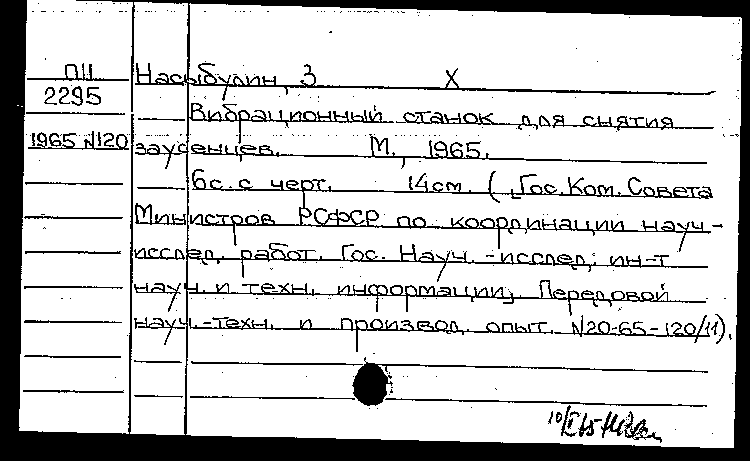 ПII Насыбулин, З Х
2295
Вибрационный станок для снятия
1965 №120 заусенцев. М., 1965.
6с. с черт. 14см. (Гос. Ком. Совета
Министров РСФСР по координации науч-
исслед. работ. Гос. Науч.-исслед. ин-т
науч. и техн. информации, Передовой
науч.-техн. и производ. опыт. №20-65-120/11).